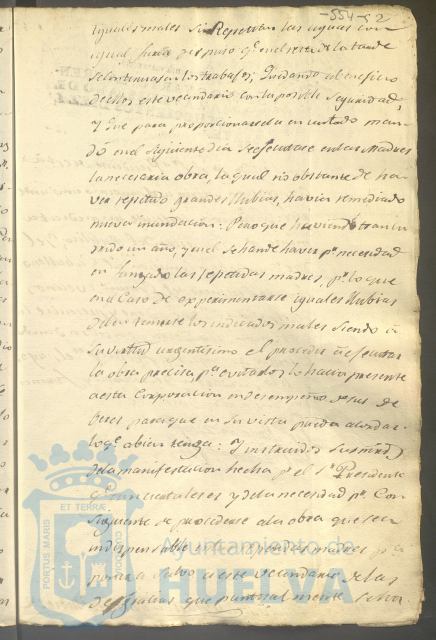 -554-52
iguales males si Repetian las aguas con
igual furia dispuso qe. en el resto de la tarde
se continuasen los trabajos, quedando a beneficio
de ellos este vecindario con la posible seguridad,
Y que para proporcionarsela en un todo man-
dó en el siguiente dia se ejecutase en las Madres
la necesaria obra, la qual no obstante de ha-
ver repetido grandes llubias, havia remediado
nueva inundacion: Pero que haviendo trancur-
rido un año, y en el se han de haver pr. necesidad
en fangado las repetidas madres, pr. lo que
en el Caso de experimentarse iguales llubias
deben temerse los indicados males siendo en
su virtud urgentisimo el proceder a ejecutar
la obra precisa, pa. evitarlos lo hacia presente
a esta Corporacion en desempeño de sus de
beres para que en su vista pueda acordar
lo qe. a bien tenga: Y instruidos sus mrds.
de la manifestacion hecha pr. el Sr. Presidente
y de la necesidad pr. Con-
siguiente de procederse a la obra que sea
indispensable en las repetidas madres pa.
poner a salvo a este vecindario de las
desgracias que
PORTUS MARIS
ET TERRÆ
CUSTODIA
Ayuntamiento de
HUELVA